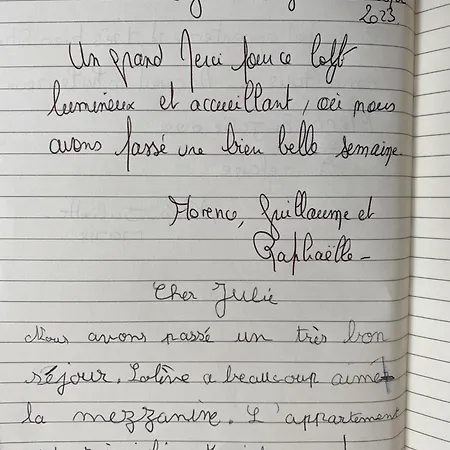 2023
Un grand Merci pour ce loft
lumineux et accueillant, où nous
avons passé une bien belle semaine.
Florence, Guillaume et
Raphaëlle -
Cher Julie
Nous avons passé un très bon
séjour. a beaucoup aimé
la mezzanine. L'appartement